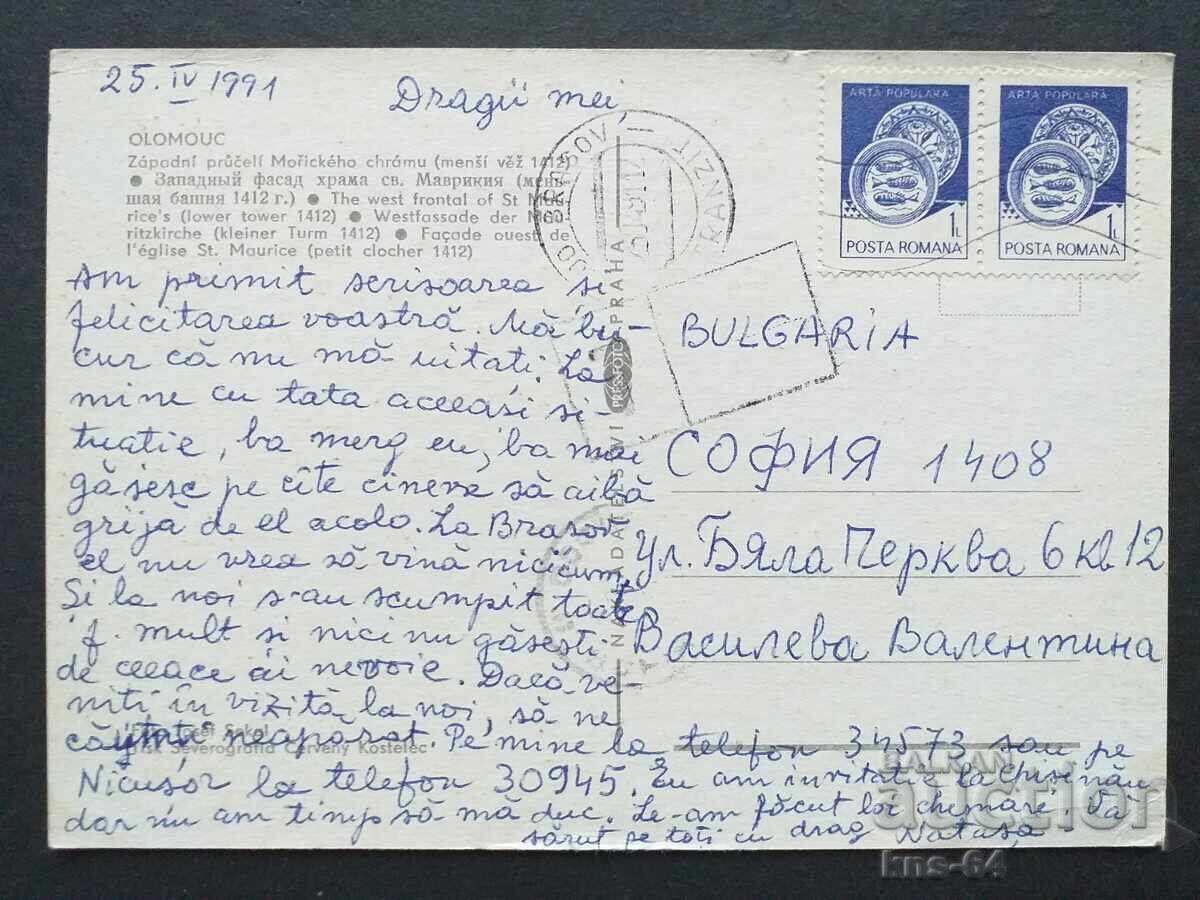 25. IV 1991
Dragii mei
OLOMOUC
Západní průčelí Mořického chrámu (menší věž 1412)
● Западный фасад храма св. Маврикия (мень-
шая башня 1412 г.) ● The west frontal of St Mau-
rice's (lower tower 1412) ● Westfassade der Mau-
ritzkirche (kleiner Turm 1412) ● Façade ouest de
l'église St. Maurice (petit clocher 1412)
Am primit scrisoarea și
felicitarea voastră. Mă bu-
cur că nu mă uitați. La
mine cu tata aceeași si-
tuatie, ba merg eu, ba mai
găsesc pe cîte cineva să aibă
grijă de el acolo. La Brasov
el nu vrea să vină nicicum.
Și la noi s-au scumpit toate
f. mult si nici nu găsesti
de ceeace ai nevoie. Dacă ve-
niti în vizită la noi, să ne
căutați neaparat. Pe mine la telefon 34573 sau pe
Nicușor la telefon 30945. Eu am invitatie la Chisinău
dar nu am timp să mă duc. Le-am făcut loi chemare. Vă
sărut pe toți cu drag Natașa
Sokol
Tisk Severografia Červený Kostelec
NAKLADATELSTVÍ PRESSFOTO PRAHA
PRESSFOTO
BRASOV
TRANZIT
ARTA POPULARA
1L
POSTA ROMANA
ARTA POPULARA
1L
POSTA ROMANA
BULGARIA
СОФИЯ 1408
ул. Бяла Черква 6 кв 12
Василева Валентина
BALKAN
auction
kns-64